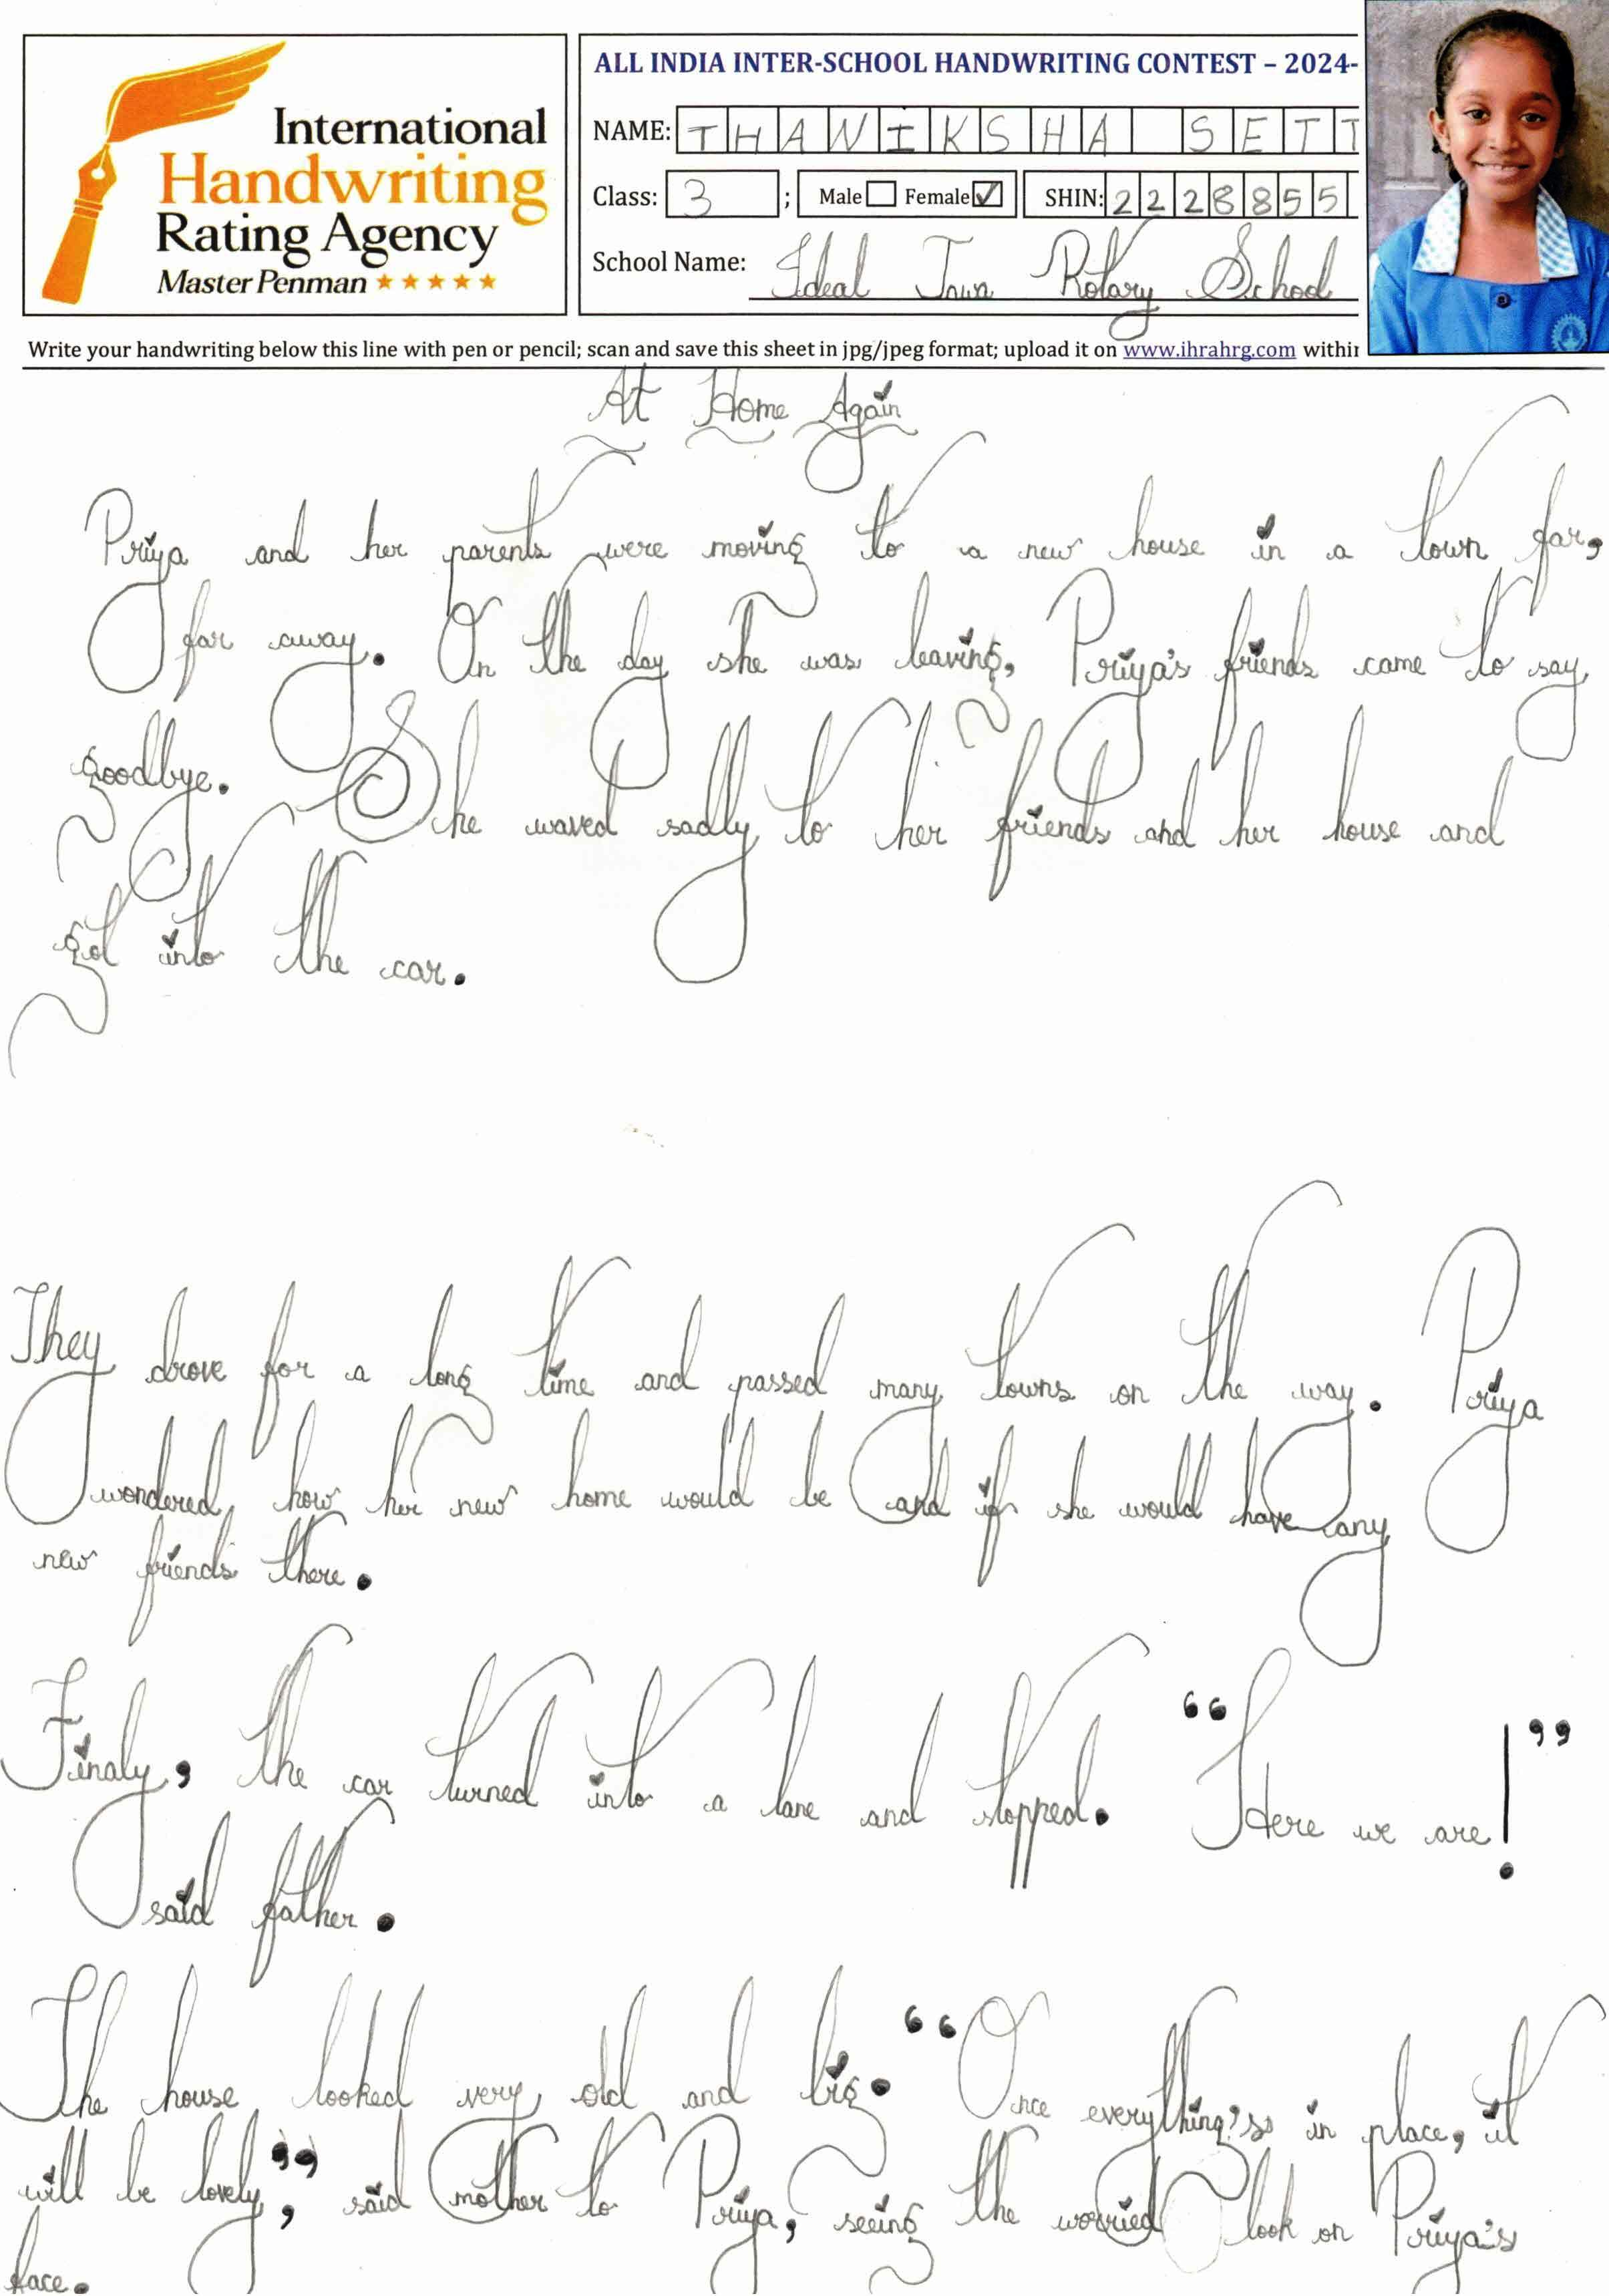 International
Handwriting
Rating Agency
Master Penman
ALL INDIA INTER-SCHOOL HANDWRITING CONTEST – 2024-
NAME: THANIKSHA SETT
Class: 3 ; Male Female ✓ SHIN: 2228855
School Name: Ideal Jawa Rotary School
Write your handwriting below this line with pen or pencil; scan and save this sheet in jpg/jpeg format; upload it on www.ihrahrg.com within
At Home Again
Priya and her parents were moving to a new house in a town far,
far away. On the day she was leaving, Priya's friends came to say
goodbye. She waved sadly to her friends and her house and
got into the car.
They drove for a long time and passed many towns on the way. Priya
wondered how her new home would be and if she would have any
new friends there.
Finaly, the car turned into a lane and stopped. "Here we are!"
said father.
The house looked very old and big. "Once everything's in place, it
will be lovely", said mother to Priya, seeing the worried look on Priya's
face.